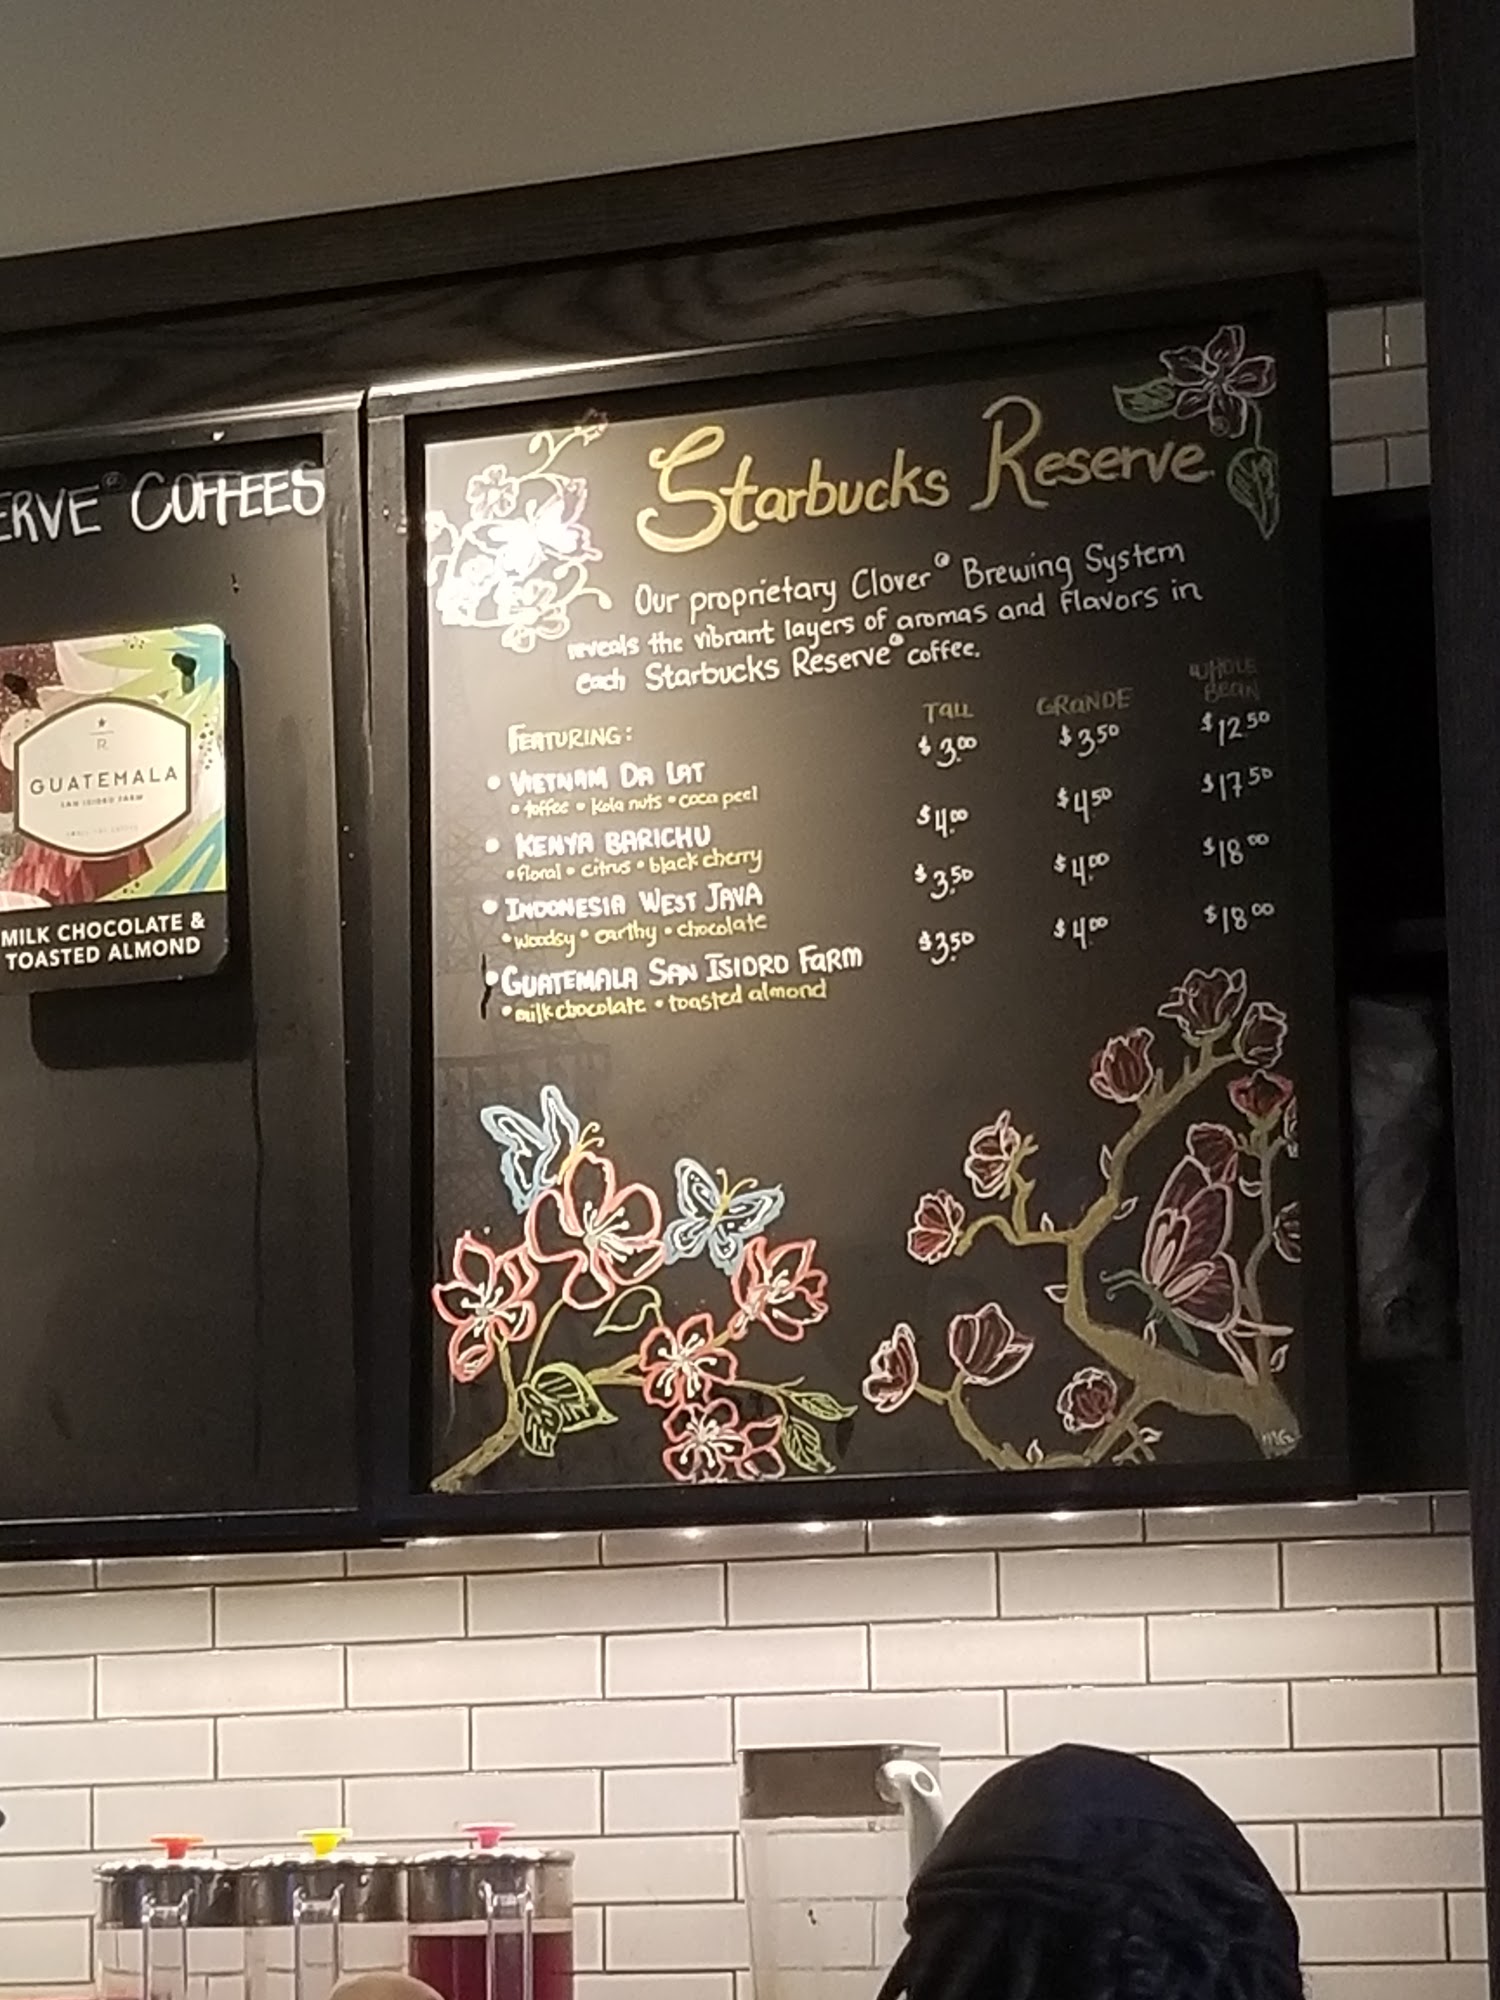 ERVE® COFFEES
R
GUATEMALA
SAN ISIDRO FARM
MILK CHOCOLATE &
TOASTED ALMOND
Starbucks Reserve
Our proprietary Clover® Brewing System
reveals the vibrant layers of aromas and flavors in
each Starbucks Reserve® coffee.
FEATURING: TALL GRANDE WHOLE BEAN
• VIETNAM DA LAT $3.00 $3.50 $12.50
• toffee • kola nuts • coca peel
• KENYA BARICHU $4.00 $4.50 $17.50
• floral • citrus • black cherry
• INDONESIA WEST JAVA $3.50 $4.00 $18.00
• woodsy • earthy • chocolate
• GUATEMALA SAN ISIDRO FARM $3.50 $4.00 $18.00
• milk chocolate • toasted almond
MG